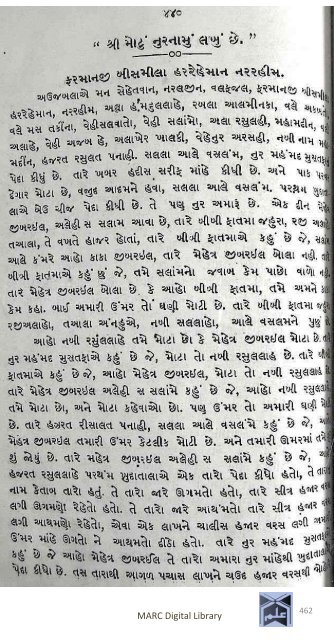 ૪૪૦
" શ્રી મોટું નુરનામું લખું છે. "
ફરમાનજી બીસમીલા હરરેહેમાન નરરહીમ.
અઉજબલાએ મન સેહેતવાન, નરલજીન, વલફજલ, ફરમાનજી બીસમી
હરરેહેમાન, નરરહીમ, અલ્લા હંમદુલલાહે, રબલા આલમીનકા, વલે
વલે મસ તકીના, વેહીસલવાતો, વેહી સલાંમો, અલા રસુલહી, મહામદીન,
અલાહે, વેહી અજબ હે, અલાએર ખાલકી, વેહેનુર અરસહી, નબી નામ
મદીન, હજરત રસુલત પનાહી. સલલા આલે વસલમ, નુર મહંમદ
પેદા કીધું છે. તારે ખબર હદીસ સરીફ માંહે કીધી છે. અને પાક
દેગાર મોટા છે, વજુદ આદમને હવા, સલલા આલે વસલમ. પરથમ
લાએ બેઉ ચીજ પેદા કીધી છે. તે પણ નુર અમારૂં છે. એક દીન
જીબરઈલ, અલેહી સ સલામ આવા છે, તારે બીબી ફાતમા જહુરા, રજી
તઆલા, તે વખતે હાજર હોતાં, તારે બીબી ફાતમાએ કહું છે જે,
આલે કંમરે આહો કાકા જીબરઈલ, તારે મેહેત્ર જીબરઈલ બોલા નહી.
બીબી ફાતમાએ કહું છું જે, તમે સલાંમનો જવાબ કેમ પાછો વાળો
તારે મેહેત્ર જીબરઈલ બોલા છે કે આહો બીબી ફાતમા, તમે અમને
કેમ કહા. બાઈ અમારી ઉંમર તો ઘણી મોટી છે, તારે બીબી ફાતમા
રજીઅલાહો, તઆલા અંનહુએ, નબી સલલાહો, આલે વસલમને પુછું
આહો નબી રસુલલાહે તમે મોટા છો કે મેહેત્ર જીબરઈલ મોટા છે.
નુર મહંમદ મુસતફાએ કહું છે જે, મોટા તો નબી રસુલલાહ છે. તારે
ફાતમાએ કહું છે જે, આહો મેહેત્ર જીબરઈલ, મોટા તો નબી રસુલલાહ
તારે મેહેત્ર જીબરઈલ અલેહી સ સલાંમે કહું છે જે, આહો નબી રસુલલાહ
તમે મોટા છો, અને મોટા કહેવાઓ છો. પણુ ઉંમર તો અમારી ઘણી
છે. તારે હજરત રીસાલત પનાહી, સલલા આલે વસલમે કહું છે જે,
મેહેત્ર જીબરઈલ તમારી ઉંમર કેટલીક મોટી છે. અને તમારી ઊમરમાં
શું જોયું છે. તારે મહેત્ર જીબરઈલ અલેહી સ સલાંમે કહું છે જે,
હજરત રસુલલાહે પરથમ ખુદાતાલાએ એક તારો પેદા કીધો હતો,
નામ કેતાળ તારો હતું. તે તારો જારે ઊગમતો હતો, તારે સીત્ર હજાર
લગી ઊગમણો રેહેતો હતો. તે તારો જારે આથમતો તારે સીત્ર હજાર
લગી આથમણો રેહેતો, એવા એક લાખને ચાલીસ હજાર વરસ લગી
ઉંમર માંહે ઊગતો ને આથમતો દીઠો હતો. તારે નુર મહંમદ
કહું છે જે આહો મેહેત્ર જીબરઈલ તે તારો અમારા નુર માંહેથી
પેદા કીધો છે. તસ તારાથી આગળ પચાસ લાખને ચઉદ હજાર વરસથી
MARC Digital Library
462